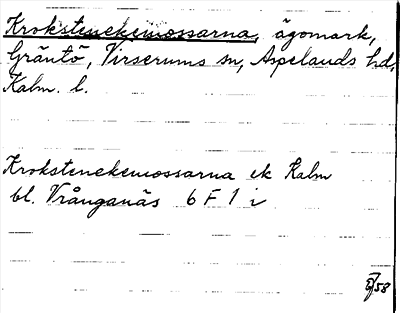 Krokstenekemossarna, ägomark,
Gräntö, Virserums sn, Aspelands hd,
Kalm. l.
Krokstenekemossarna ek Kalm
bl. Vrånganäs 6 F 1 i
58